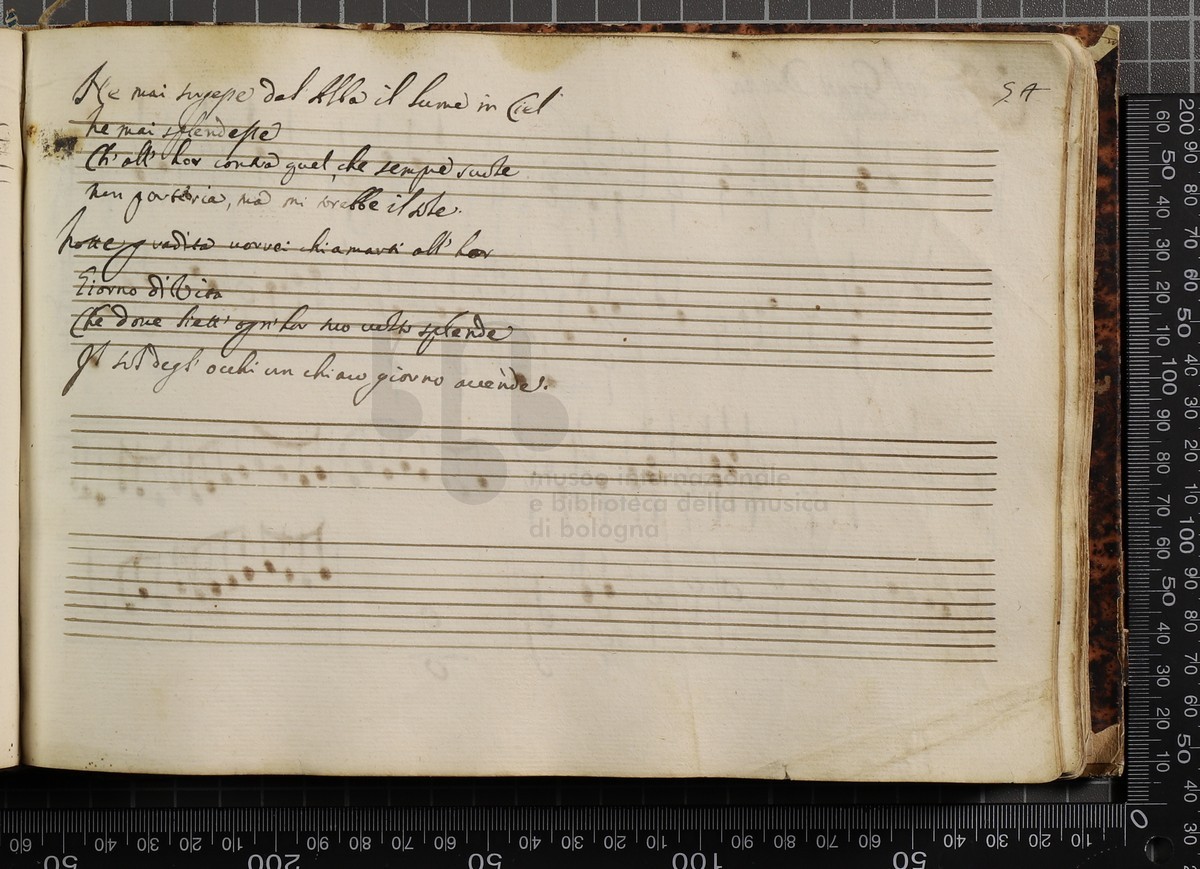 54
Ne mai sorgesse dal Alba il lume in Ciel
ne mai splendesse
Ch' all' hor contra quel, che sempre suole
non partiria, ma mi sarebbe il sole.
Notte gradita vorrei chiamarti all' hor
Giorno di Vita
Che dove liett' ogn' hor suo volto splende
Il sol degl' occhi un chiaro giorno accende.
museo internazionale
e biblioteca della musica
di bologna